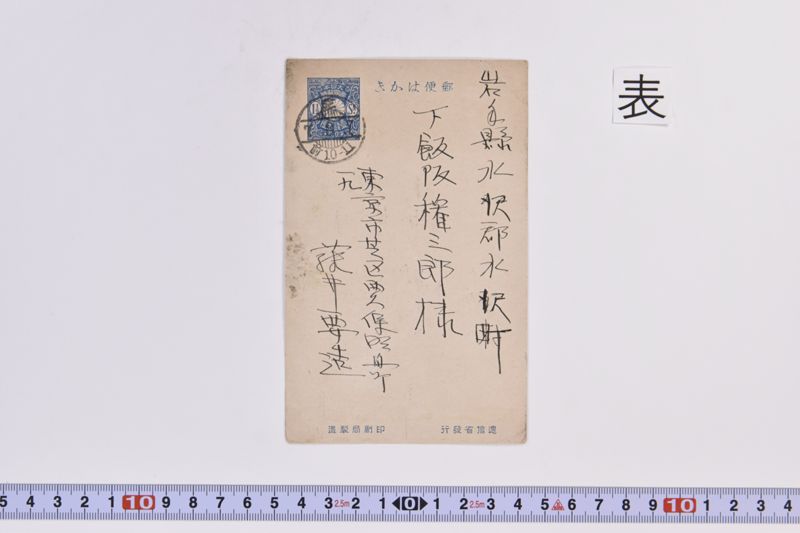 表
郵便はかき
岩手縣水沢郡水沢町
下飯坂権三郎様
東京市芝区西久保明舟町
一九
藤井要造
印刷局製造
遞信省發行
5 4 3 2 1 10 9 8 7 6 5 4 3 2.5m 2 1 0 1 2 2.5m 3 4 5 6 7 8 9 10 1 2 3 4